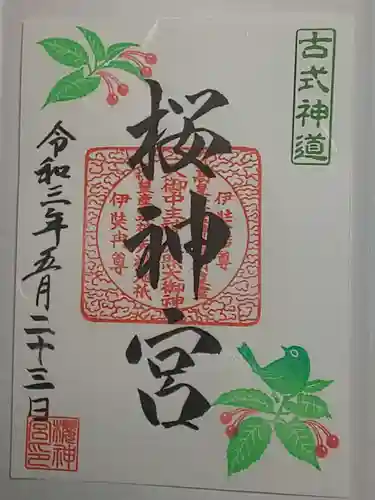 古式神道
桜神宮
令和三年五月二十三日
伊弉冉尊
桜神宮印